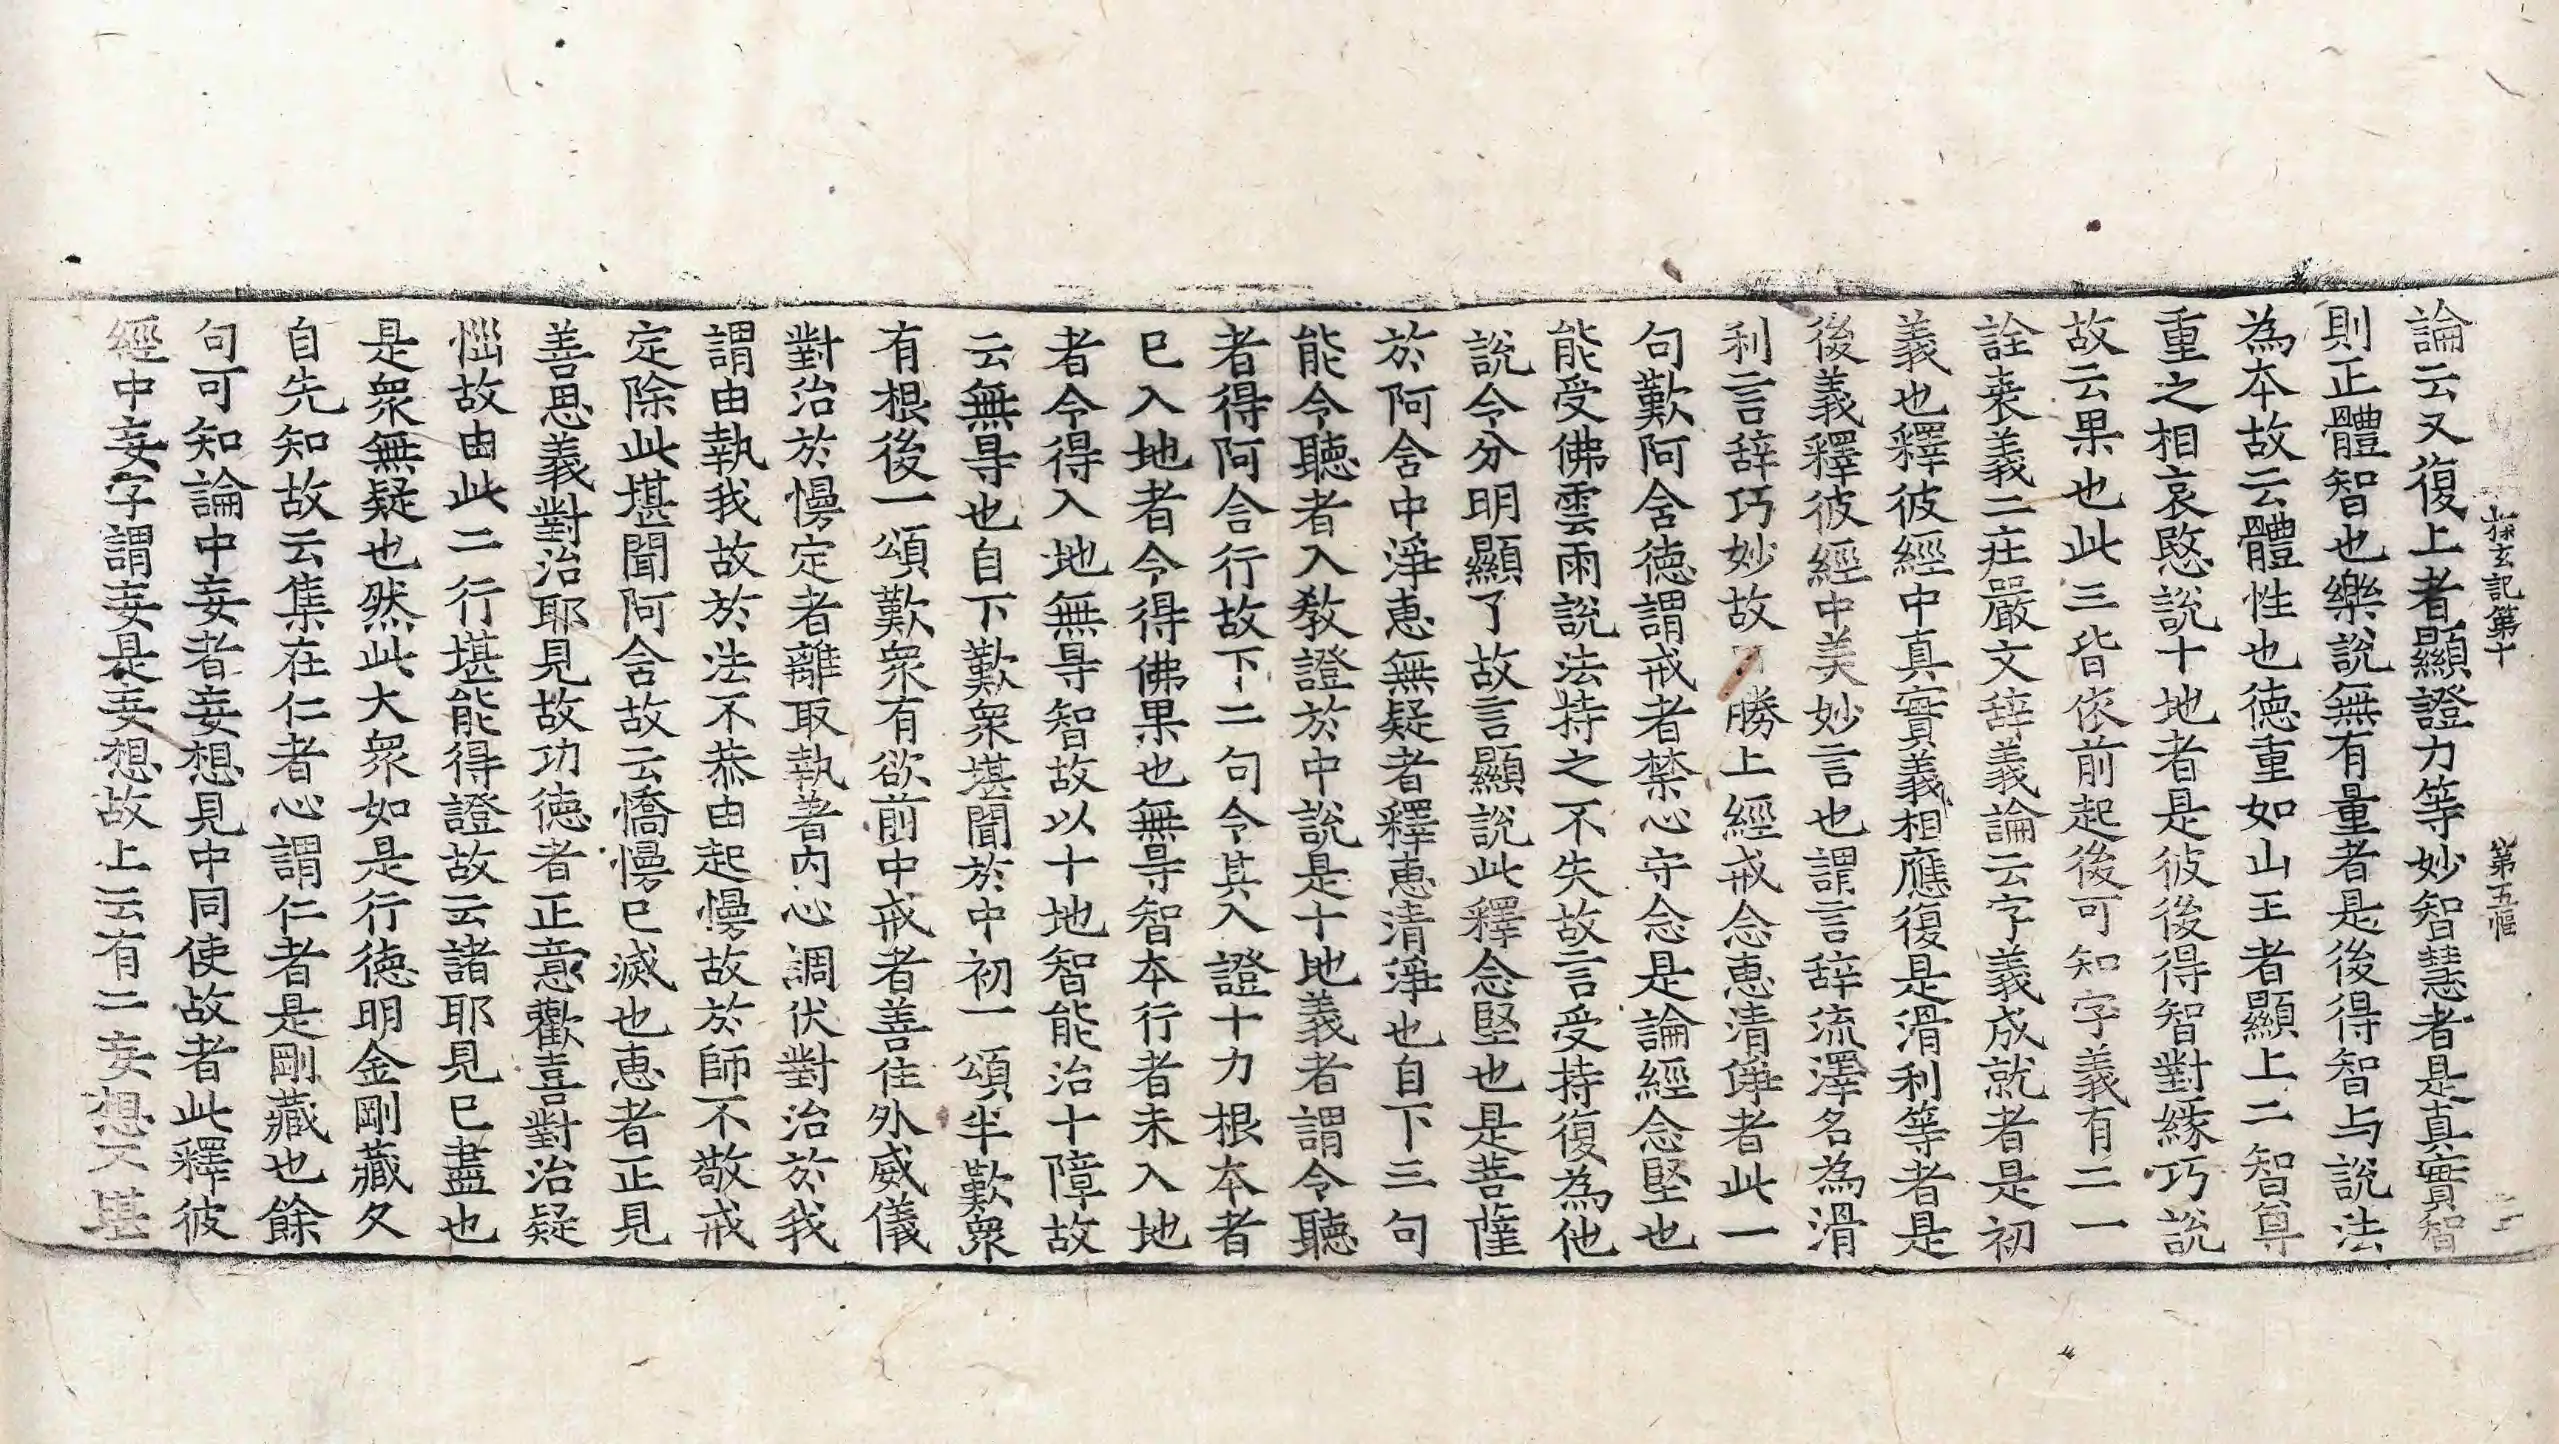 探玄記第十　第五幅
論云又復上者顯證力等妙智慧者是真實智
則正體智也樂說無有量者是後得智与說法
為本故云體性也德重如山王者顯上二智尊
重之相哀愍說十地者是彼後得智對緣巧說
故云果也此三皆依前起後可知字義有二一
詮表義二庄嚴文辞義論云字義成就者是初
義也釋彼經中真實義相應復是滑利等者是
後義釋彼經中美妙言也謂言辞流澤名為滑
利言辞巧妙故勝上經戒念恵清淨者此一
句歎阿含德謂戒者禁心守念是論經念堅也
能受佛雲雨說法持之不失故言受持復為他
說令分明顯了故言顯說此釋念堅也是菩薩
於阿含中淨恵無疑者釋恵清淨也自下三句
能令聽者入教證於中說是十地義者謂令聽
者得阿含行故下二句令其入證十力根本者
已入地者令得佛果也無㝵智本行者未入地
者令得入地無㝵智故以十地智能治十障故
云無㝵也自下歎衆堪聞於中初一頌半歎衆
有根後一頌歎衆有欲前中戒者善住外威儀
對治於慢定者離取執著内心調伏對治於我
謂由執我故於法不恭由起慢故於師不敬戒
定除此堪聞阿含故云憍慢已滅也恵者正見
善思義對治耶見故功德者正意歡喜對治疑
惱故由此二行堪能得證故云諸耶見已盡也
是衆無疑也然此大衆如是行德明金剛藏久
自先知故云集在仁者心謂仁者是剛藏也餘
句可知論中妄者妄想見中同使故者此釋彼
經中妄字謂妄是妄想故上云有二妄想不堪